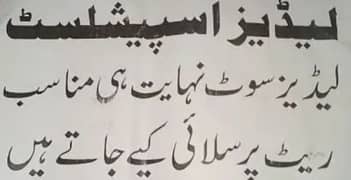 لیڈیز اسپیشلسٹ
لیڈیز سوٹ نہایت ہی مناسب
ریٹ پر سلائی کیے جاتے ہیں